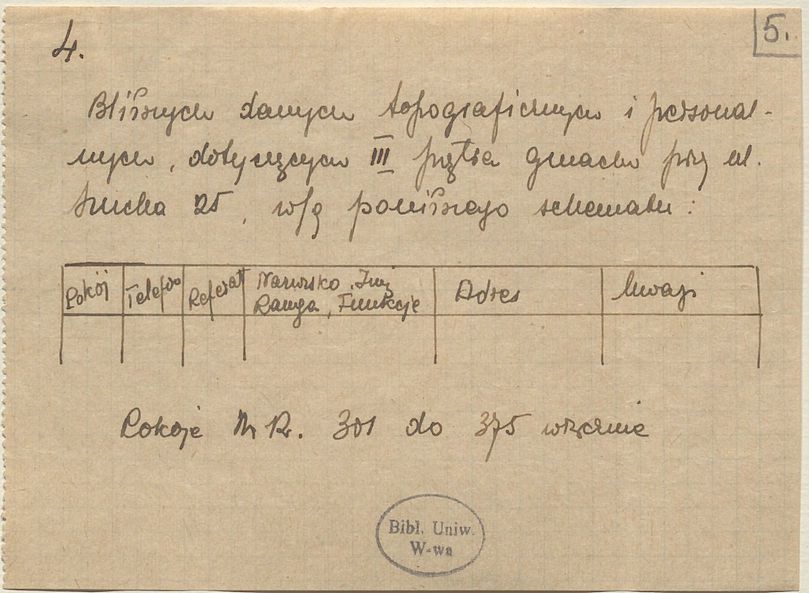 4.
5.
Bliższych danych topograficznych i personal-
nych, dotyczących III piętra gmachu przy ul.
Szucha 25, w/g poniższego schematu:
Pokój Telefon Referat Nazwisko, Imię Adres Uwagi
Ranga, Funkcje
Pokoje Nr Nr. 301 do 375 włącznie
Bibl. Uniw.
W-wa